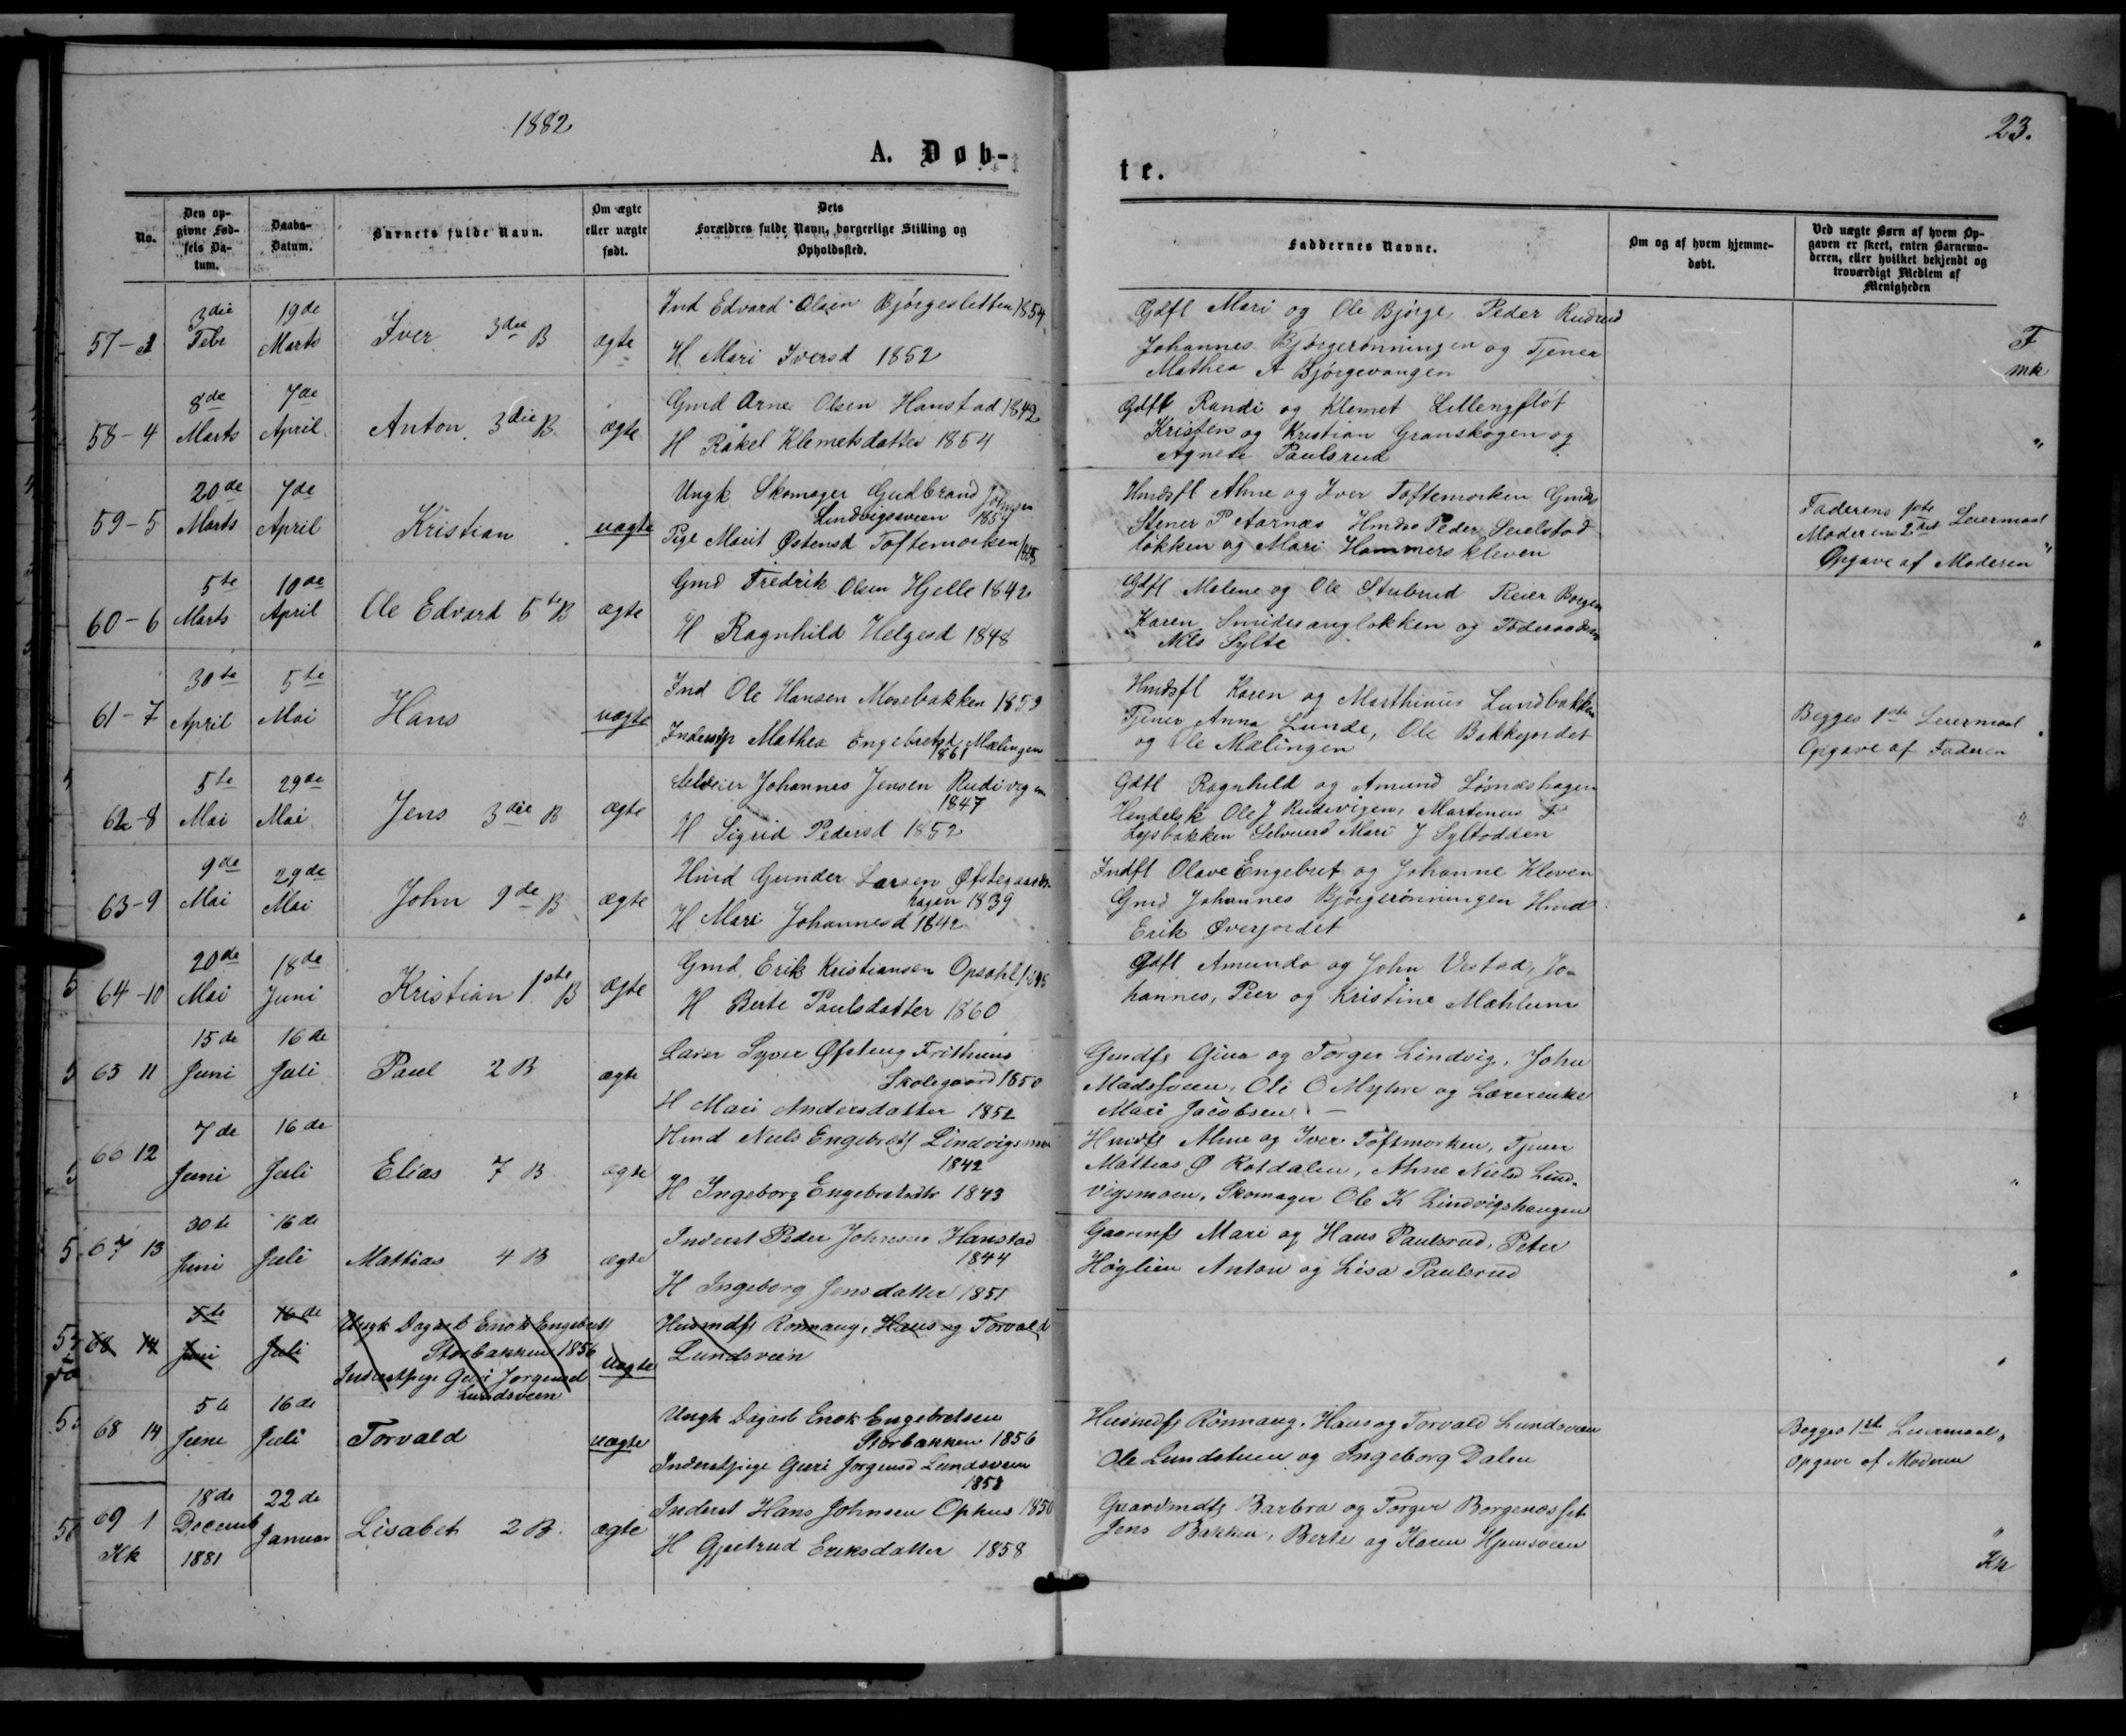 1882
23.
A. Døb-
te.
No.
Den op-
givne Fød-
sels Da-
tum.
Daabs-
Datum.
Barnets fulde Navn.
Om ægte
eller uægte
født.
Dets
Forældres fulde Navn, borgerlige Stilling og
Opholdssted.
Faddernes Navne.
Om og af hvem hjemme-
døbt.
Ved uægte Børn af hvem Op-
gaven er skeet, enten Barnemo-
deren, eller hvilket bekjendt og
troværdigt Medlem af
Menigheden
57-3
3die
Febr
19de
Marts
Iver 3die B
ægte
Ind Edvard Olsen Bjørgesletten 1854
H Mari Iversd 1852
Gdfl Mari og Ole Bjørge, Peder Rudrud
Johannes Bjørgerønningen og Tjener
Mathea A Bjørgevangen
F
mk
58-4
8de
Marts
7de
April
Anton 3die B
ægte
Gmd Arne Olsen Hanstad 1842
H Råkel Klemetsdatter 1854
Gdfl Randi og Klemet
Kristen og Kristian Granskogen og
Agnete Paulsrud
"
59-5
20de
Marts
7de
April
Kristian
uægte
Ungk Skomager Gudbrand Johnsen
Lindvigsveen 1854
Pige Marit Østensd Toftemoeken
Hmdsfl Ahne og Iver Toftemoeken Gmds
Stener P Aarnæs Hmds Peder
løkken og Mari Hammerskleven
Faderens 1ste
Moderens 2det Leiermaal
Opgave af Moderen "
60-6
5te
Marts
10de
April
Ole Edvard 5te B
ægte
Gmd Fredrik Olsen Hjelle 1842
H Ragnhild Helgesd 1848
Gdfl Malene og Ole Stubrud Reier Borgen
Karen Smidesangløkken og
Nils Sylte
"
61-7
30te
April
5te
Mai
Hans
uægte
Ind Ole Hansen Morebakken 1859
Inderstp Mathea Engebretsd Mælingen
1861
Hmdsfl Karen og Marthinus Lundbakken
Tjener Anna Lunde, Ole Bakkejordet
og Ole Mælingen
Begges 1ste Leiermaal
Opgave af Faderen
"
62-8
5te
Mai
29de
Mai
Jens 3die B
ægte
Selveier Johannes Jensen Rudivigen
1847
H Sigrid Pedersd 1852
Gdfl Ragnhild og Amund Lømdshagen
Handelsk Ole J Rudivigen, Martenus P
Lysbakken Selveierd Mari J Syltodden
"
63-9
9de
Mai
29de
Mai
John 9de B
ægte
Hmd Gunder Larsen Øfstegaards-
hagen 1839
H Mari Johannesd 1842
Indfl Olave Engebret og Johanne Kleven
Gmd Johannes Bjørgerønningen Hmd
Erik Øverjordet
"
64-10
20de
Mai
18de
Juni
Kristian 1ste B
ægte
Gmd Erik Kristiansen Opsahl
H Berte Paulsdatter 1860
Gdfl Amunda og John Vestad, Jo-
hannes, Peer og Kristine Mæhlum
65 11
15de
Juni
16de
Juli
Paul 2 B
ægte
Lærer Syver Øfsteng Frithuus
Skolegaard 1850
H Mari Andersdatter 1852
Gmdfs Gina og Torger Lindvig, John
Madssveen, Ole O Myhre og Lærerenke
Mari Jacobsen. -
"
66 12
7de
Juni
16de
Juli
Elias 7 B
ægte
Hmd Niels Engebretss Lindvigsmoen
1842
H Ingeborg Engebretsdtr 1843
Hmdfs Ahne og Iver Toftmoeken, Tjener
Mathias Ø Rotdalen, Ahne Nielsd Lind-
vigsmoen, Skomager Ole K Lindvigshaugen
"
67 13
30te
Juni
16de
Juli
Mathias 4 B
ægte
Inderst Peder Johnsen Hanstad
1844
H Ingeborg Jensdatter 1851
Gaarmfs Mari og Hans Paulsrud, Peter
Høglien Anton og Lisa Paulsrud
"
68 14
5te
Juni
16de
Juli
Ungk Dagarb Enok Engebrets
Storbakken 1856
Inderstpige Guri Jørgensd
Lundsveen
uægte
Husmdfs Rønnaug, Hans og Torvald
Lundsveen
68 14
5te
Juni
16de
Juli
Torvald
uægte
Ungk Dagarb Enok Engebretsen
Storbakken 1856
Inderstpige Guri Jørgensd Lundsveen
1858
Husmdfs Rønnaug, Hans og Torvald Lundsveen
Ole Lundstuen og Ingeborg Dalen
Begges 1ste Leiermaal "
Opgave af Moderen
69 1
Kk
18de
Decemb
1881
22de
Januar
Lisabet 2 B.
ægte
Inderst Hans Johnsen Ophus 1850
H Gjertrud Eriksdatter 1858
Gaardmdfs Barbra og Torger Borgenæsset
Jens Bakken, Berte og Karen Hjemsveen
"
Kk